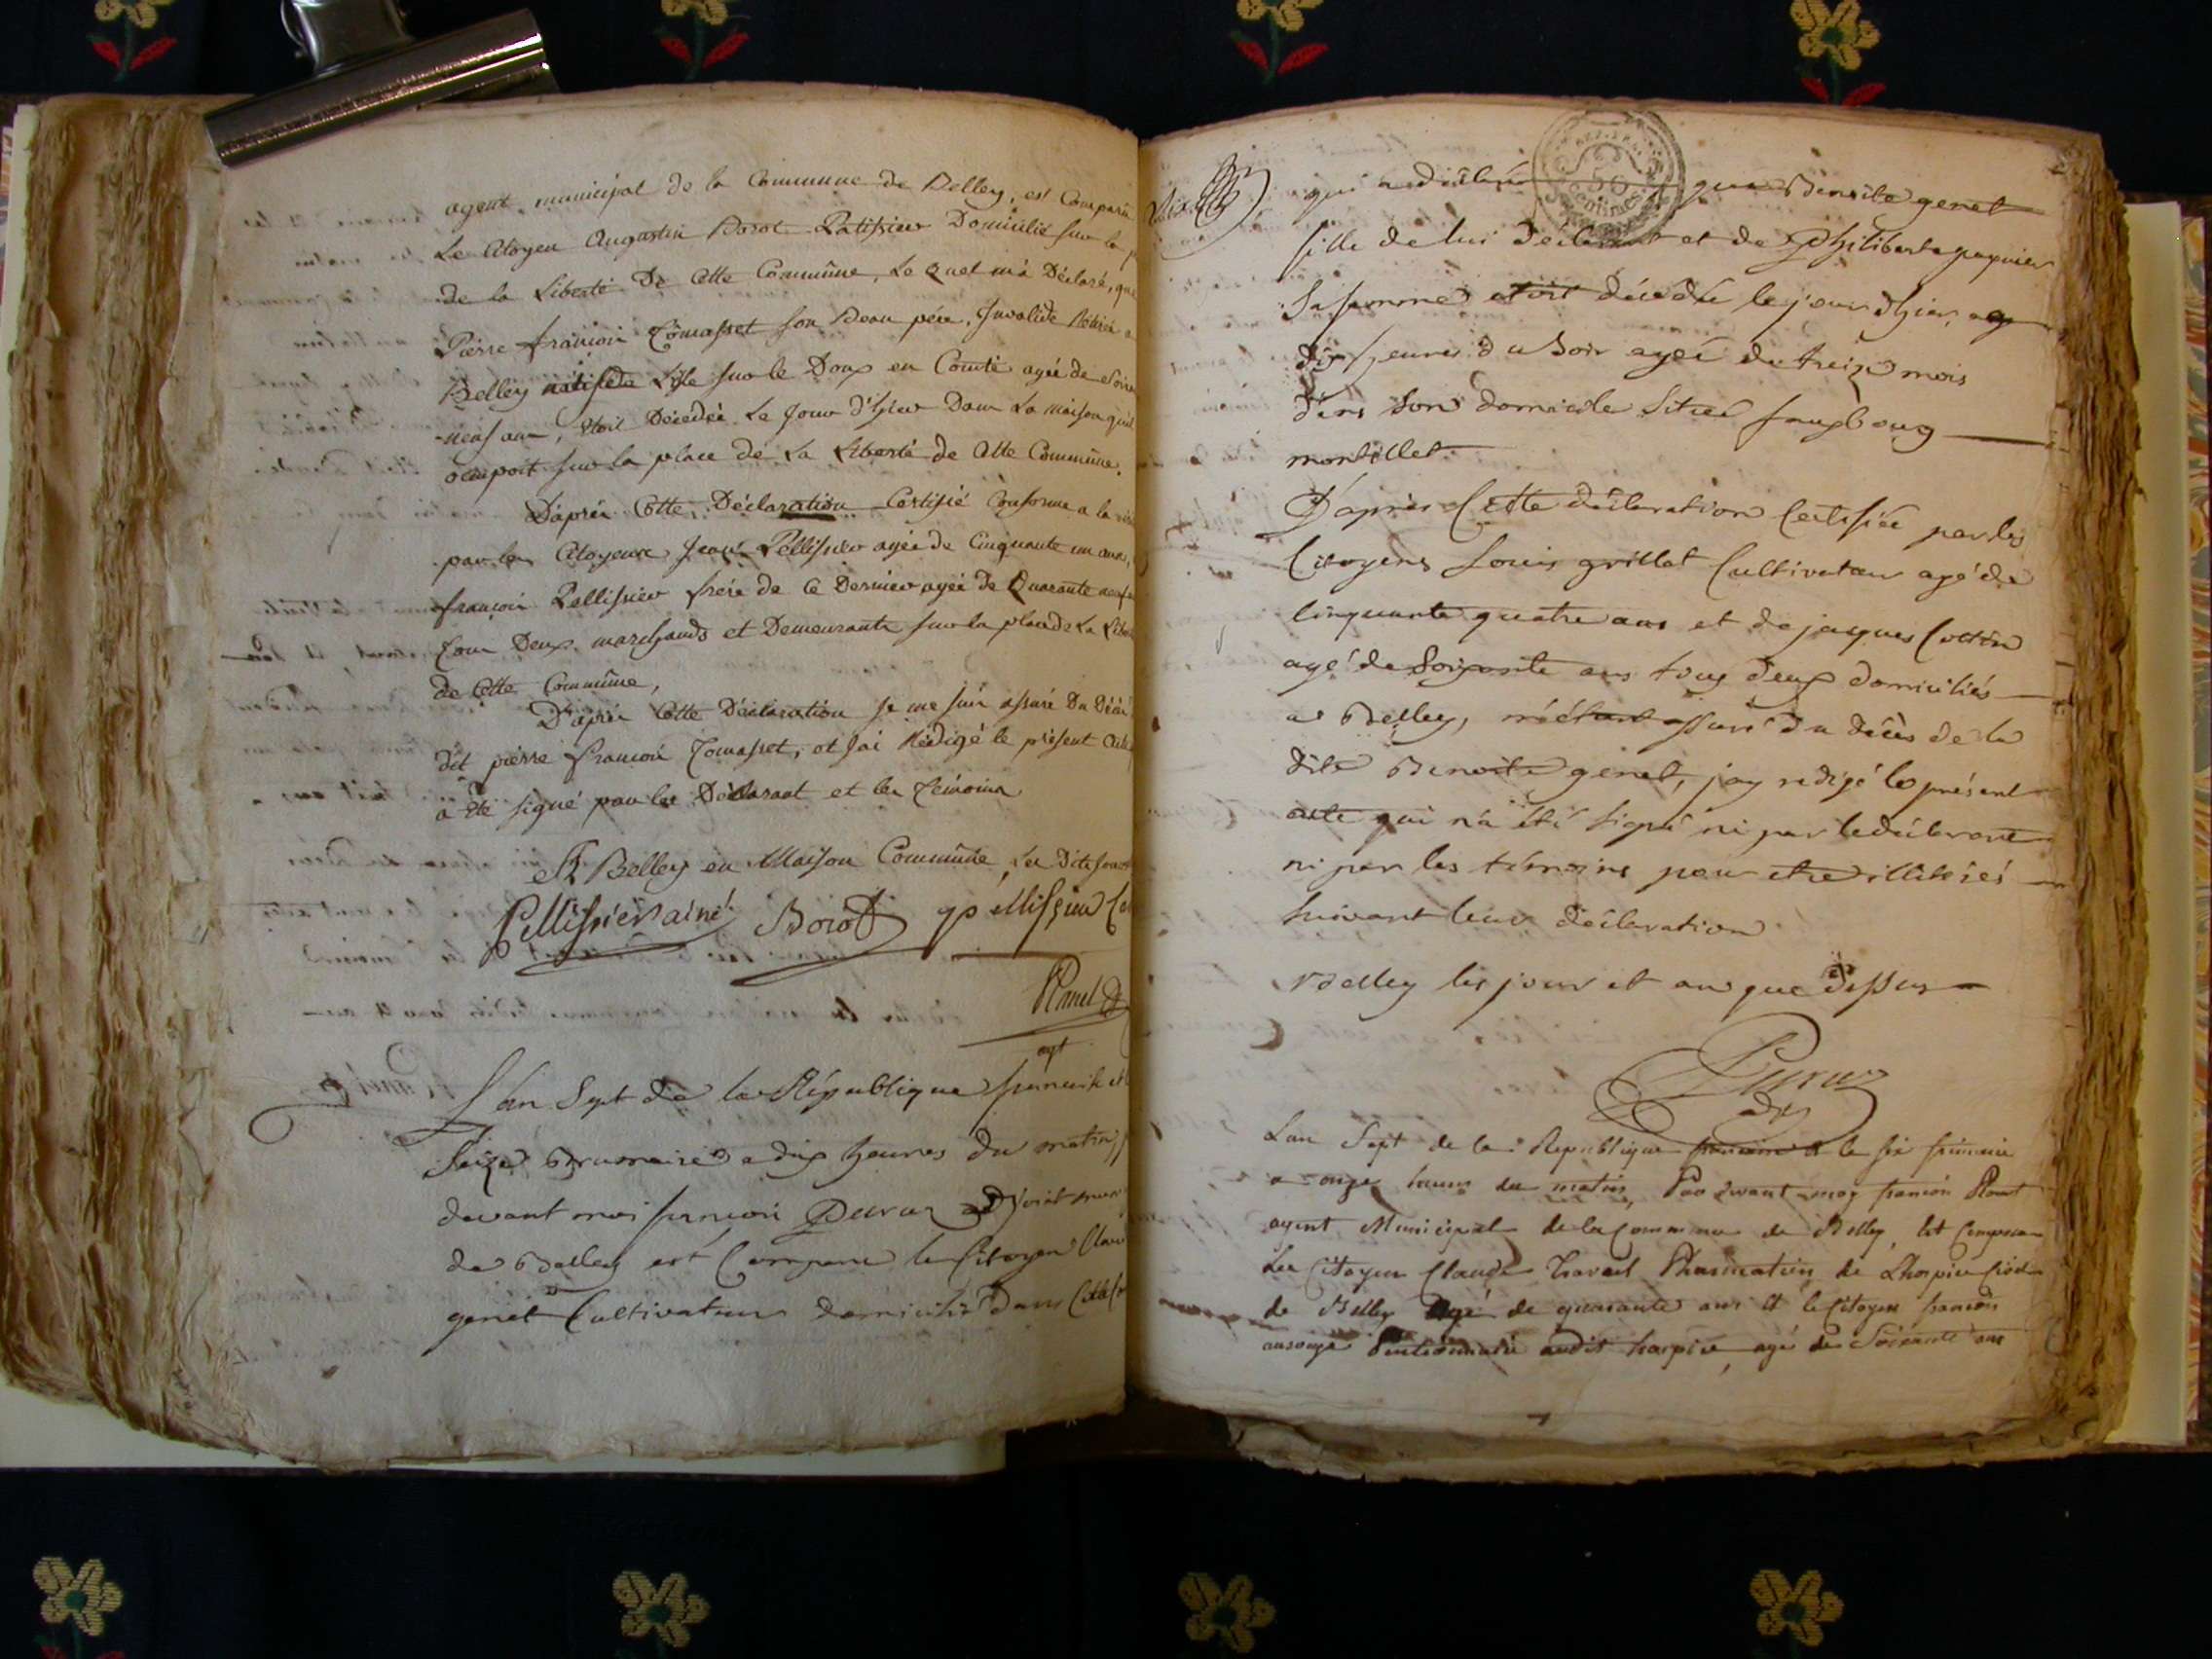 agent municipal de la Commune de Belley, est Comparu
Le Citoyen Augustin Borot Patissier Domicilié sur la
de la Liberté De Cette Commûne, Le quel m'a Déclaré, que
Pierre françoi Tomasset son Beau pére, Invalide
Belley natif de L'isle sur le Doux en Comté agée de
neuf ans, étoit Décedée Le Jour d'hier Dans La maison quil
occupoit sur la place de La Liberté de Cette Commûne.
D'aprés Cette Déclaration Certifié Conforme a la
par les Citoyens Jean Pellissier agée de Cinquante un ans,
françoi Pellissier frére de Ce Dernier agée de Quarante neuf
Tous Deux marchands et Demeurants sur la place de La
de Cette Commûne,
D'aprés Cette Déclaration Je me suis assuré Du Décé
dit pierre françoi Tomasset, et Jai Rédigé le présent
a été signé par le Déclarant et les Témoins
A Belley en Maison Commûne Les Dits jour
Pellissier ainé Borot
agt
L'an Sept de la République francaise et
Seize Brumaire a dix heures du matin
devant moi françoi Duruz adjoint
de Belley est Comparu le Citoyen
genet Cultivateur domicilié dans Cette
qui a déclaré que Benoite genet
50
Centimes
fille de lui déclarant et de Philiberte
sa femme etoit décédée le jour d'hier a
dix heures du soir agée de treize mois
dans son domicile situé fauxbourg
montillet
D'apres Cette déclaration Certifiée par les
Citoyens Louis grillet Cultivateur agé de
Cinquante quatre ans et de jacques
agé de Soixante ans tous deux domiciliés
a Belley, m'étant assuré du décès de la
dite Benoite genet, j'ay redigé le présent
acte qui n'a été signé ni par le déclarant
ni par les témoins pour etre illitérés
suivant leur déclaration
Belley les jour et an que dessus
Duruz
adj
Lan Sept de la Republique francaise et le six frimaire
a onze heures du matin, Par devant moy francois
agent Municipal de la Commune de Belley, est Comparu
Les Citoyen Claude Travail Pharmatien de L'hospice Civil
de Belley agé de quarante ans et le Citoyen francois
Pentionnaire audit hospice, agé de Soixante ans